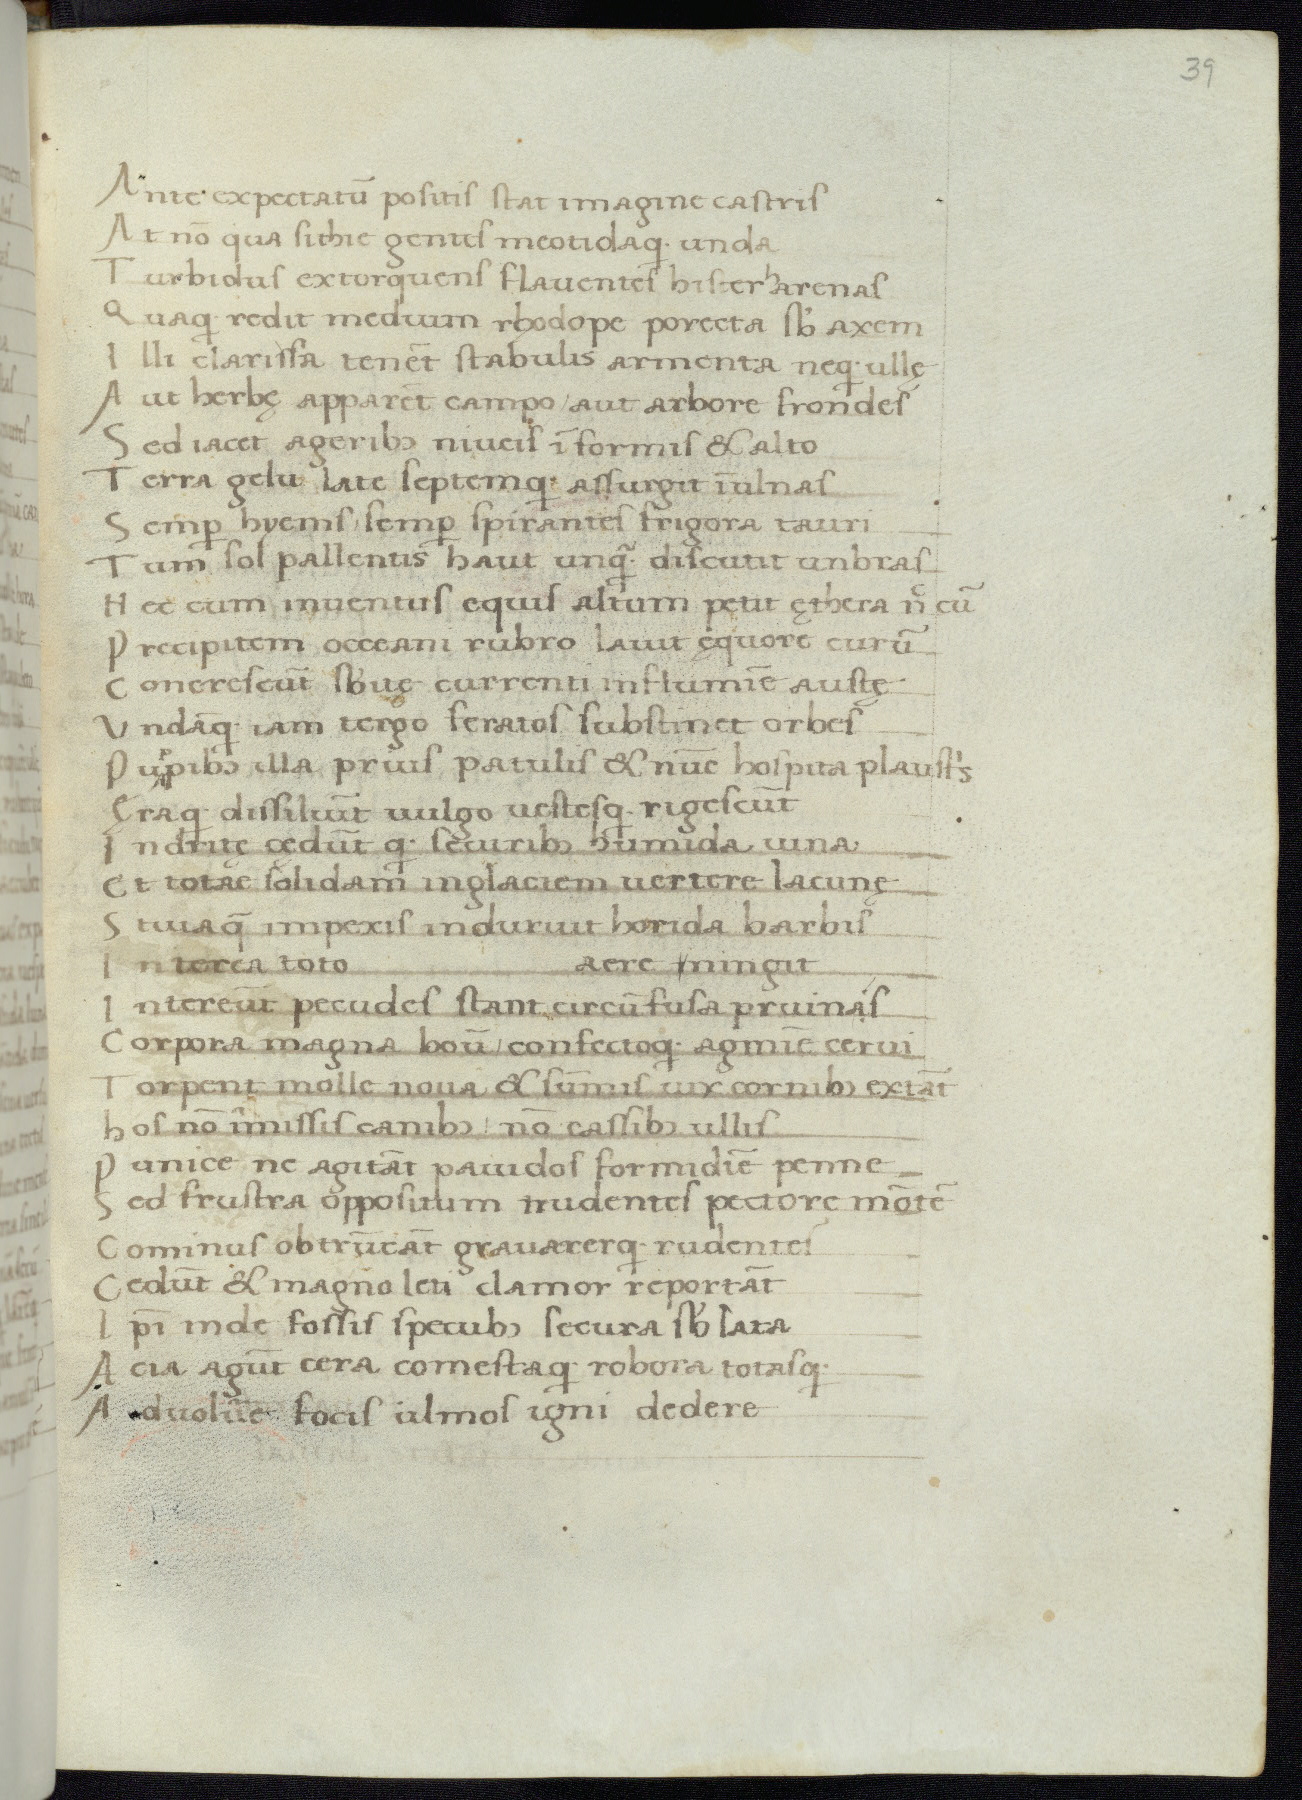 39
Ante expectatū positis stat imagine castris
At nō qua sithie gentes meotidaq; unda
Turbidus extorquens flauentes hister harenas
Quaq; redit medium rhodope porecta sb axem
Illi clarissa tenēt stabulis armenta neq; ullę
Aut herbę apparēt campo / aut arbore frondes
Sed iacet ageribꝰ niueis īformis & alto
Terra gelu late septemq; assurgit īulnas
Semp̄ hyems / semp̄ spirantes frigora tauri
Tum sol pallentis haut unq̄ discutit unbras
Nec cum inuentus equis altum petit ęthera nc̄ cū
Precipitem occeani rubro lauit ęquore currū
Concrescūt sb̓itę currenti in flumīe austę
Undaq; iam tergo feratos substinet orbes
Pupibꝰ illa prius patulis & nūc hospita plaust̓s
Ęraq; dissiliūt uulgo uestesq; rigescūt
Indutę cędūt q; securibꝰ humida uina
Et totae solidam inglaciem uertere lacunę
Stiriaq̄ impexis induruit horida barbis
Interea toto aere ningit
Intereūt pecudes stant circūfusa pruinis
Corpora magna boū / confectoq; agmīe cerui
Torpent molle noua & sūmis uix cornibꝰ extāt
hos nō īmissis canibꝰ / nō cassibꝰ ullis
Punice ne agitāt pauidos formidīe penne
Sed frustra oppositum trudentes pectore mōtē
Cominus obtrūcāt grauarerq; rudentes
Cedūt & magno leti clamor reportāt
Ip̄i inde fossis specubꝰ secura sb̓ lata
Acia agūt cera comestaq; robora totasq;
Aduolūe focis ulmos igni dedere